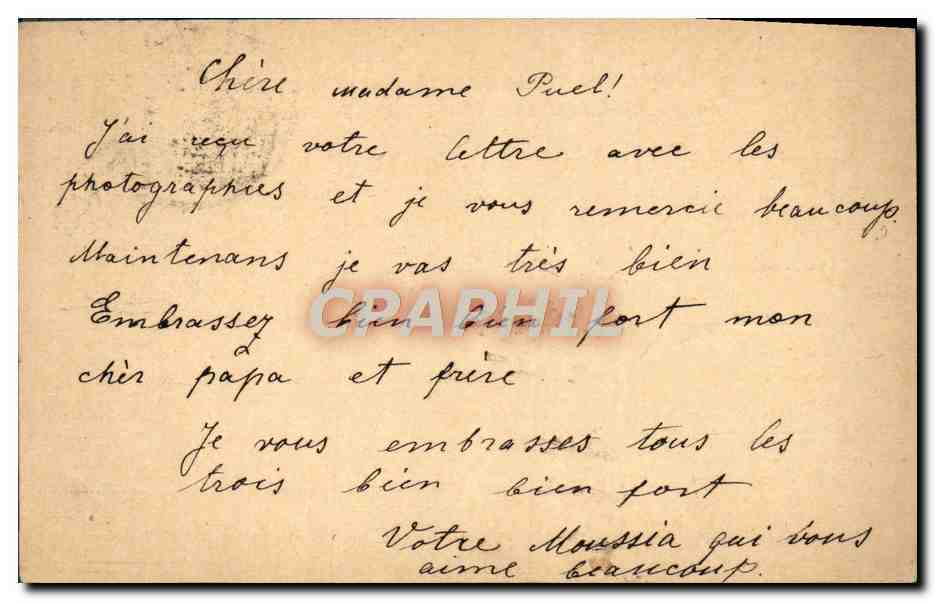 Chère madame Puel!
J'ai reçu votre lettre avec les
photographies et je vous remercie beaucoup.
Maintenans je vas très bien
Embrassez bien bien fort mon
CPAPHIL
chèr papa et frère
Je vous embrasses tous les
trois bien bien fort
Votre Moussia qui vous
aime beaucoup.